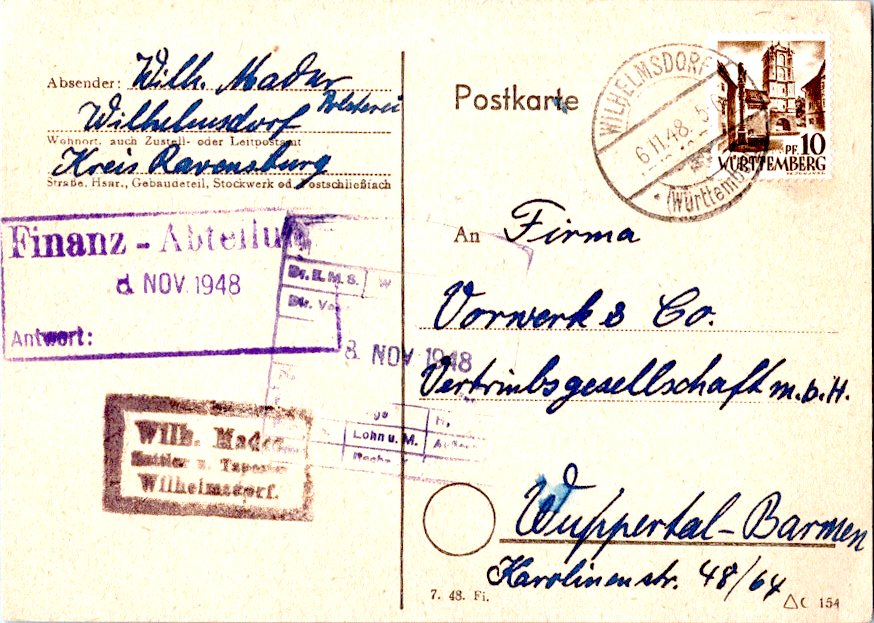 Absender: Wilh. Mader
Polsterei
Wilhelmsdorf
Wohnort, auch Zustell- oder Leitpostamt
Kreis Ravensburg
Straße, Hsnr., Gebäudeteil, Stockwerk od. Postschließfach
Postkarte
WILHELMSDORF
6.11.48. 5
(Württemb
PF. 10
WÜRTTEMBERG
An Firma
Vorwerk & Co.
Vertriebsgesellschaft m.b.H.
Wuppertal-Barmen
Karolinenstr. 48/64
Finanz - Abteilu
NOV. 1948
Antwort:
Dr. E. M. S. W
8. NOV 1948
Lohn u. M.
Wilh. Mader
Sattler u. Tapez
Wilhelmsdorf.
7. 48. Fi.
154